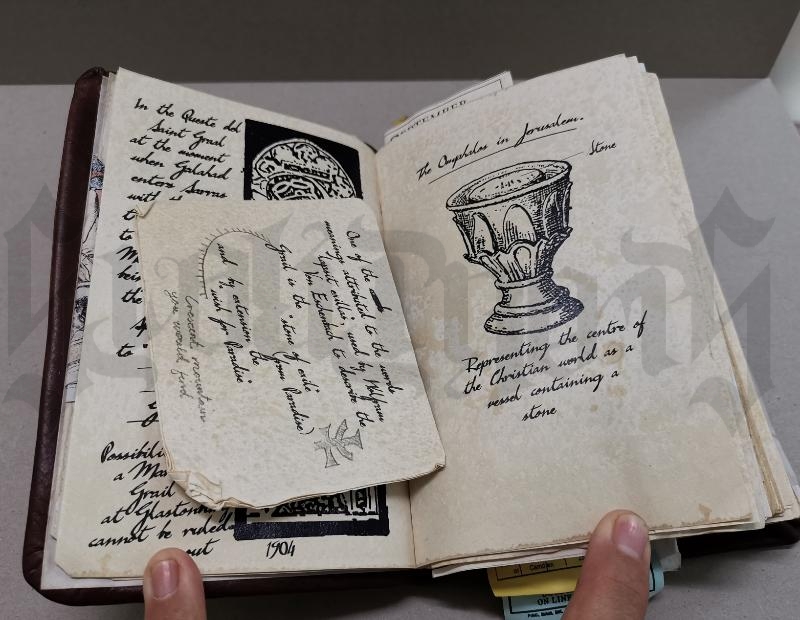 In the Queste del
Saint Graal
at the moment
when Galahad
enters Sarras
with
to
to
M
bein
the
to
Possibili
a Ma
Grail
at Glastonb
cannot be ruled
out
1904
One of the
meanings attributed to the words
"lapsit exillis" used by Wolfram
Von Eschenbach to describe the
Grail is the "stone of exile"
(from Paradise)
and by extension the
"wish for Paradise"
Crescent mountain
you would find
The Omphalos in Jerusalem.
Stone
Representing the centre of
the Christian world as a
vessel containing a
stone
Camden
ON LINE